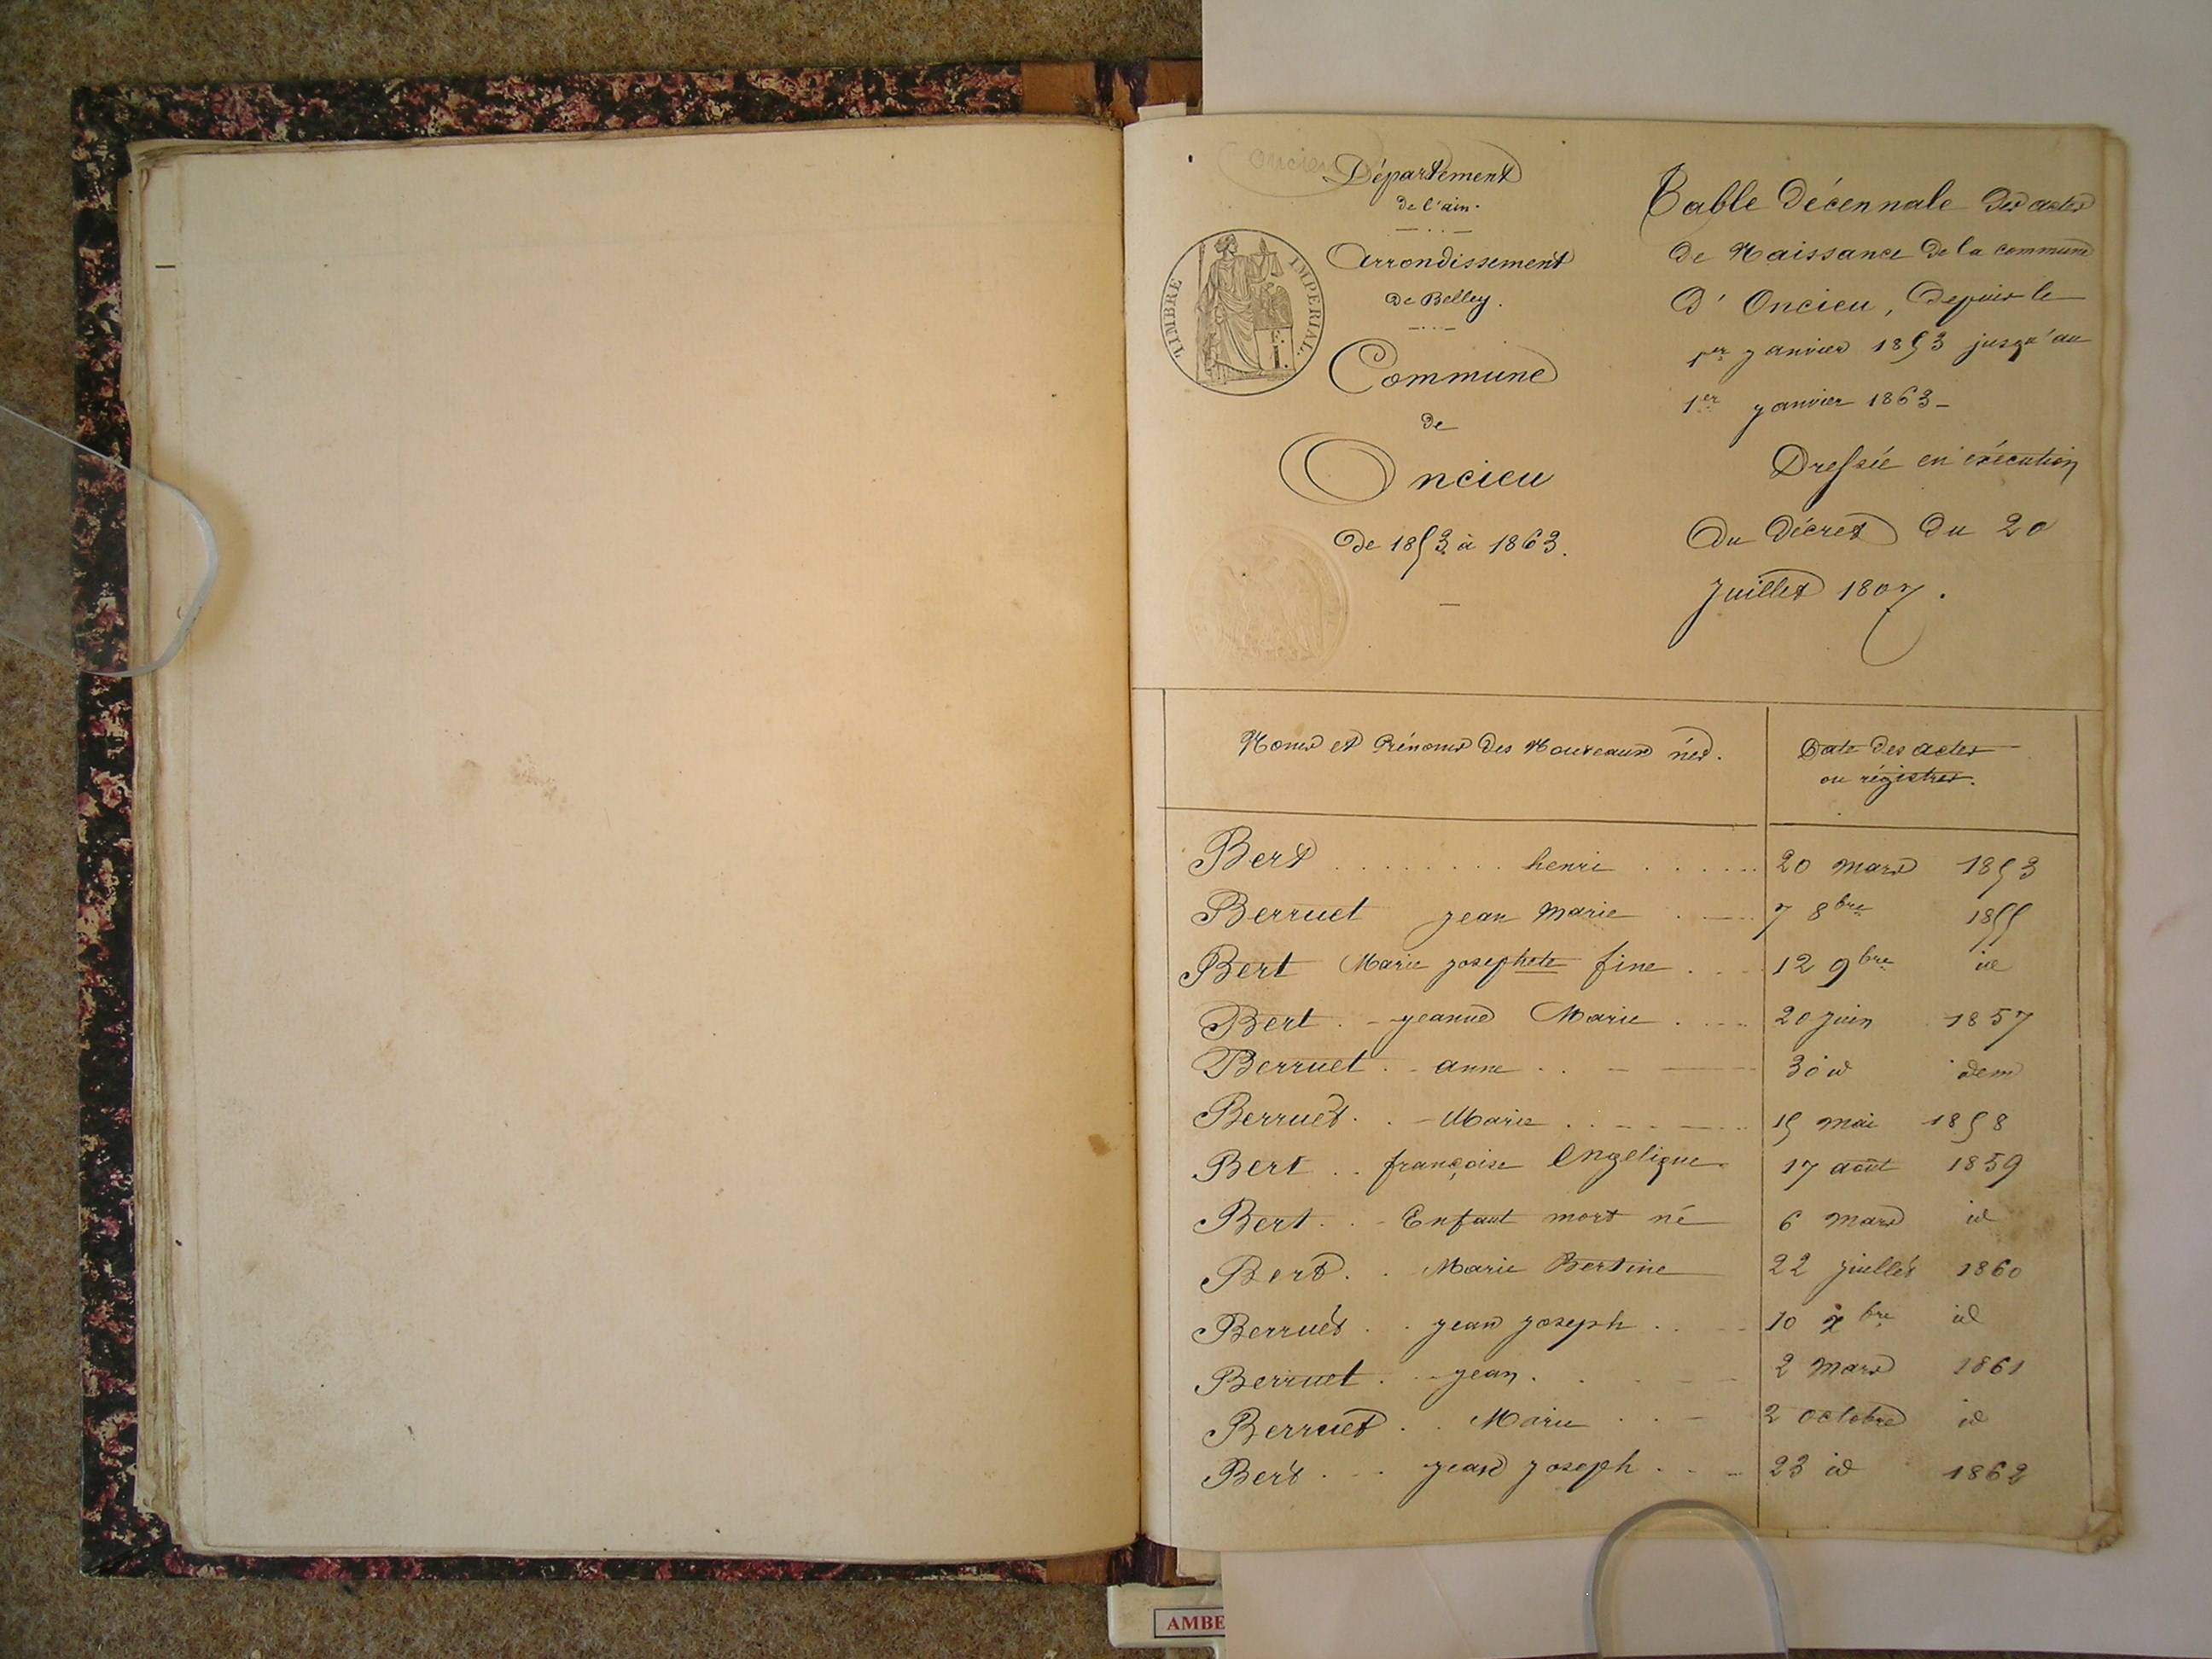 oncieu
Département
de l'ain.
Arrondissement
de Belley.
TIMBRE IMPERIAL.
Commune
de
Oncieu
De 1853 à 1863.
Table décennale des actes
de Naissance de la commune
D' Oncieu, Depuis le
1er janvier 1853 jusqu'au
1er janvier 1863 -
Dressée en exécution
Du Décret du 20
Juillet 1807.
Noms et Prénoms des Nouveaux nés.
Date des actes
ou régistres.
Bert henri 20 mars 1853
Berruet jean marie 7 8bre 1855
Bert Marie josephete fine 12 9bre id
Bert jeanne Marie 20 juin 1857
Berruet anne 30 id idem
Berruet Marie 15 mai 1858
Bert françoise Engelique 17 août 1859
Bert Enfant mort né 6 mars id
Bert Marie Bertine 22 juillet 1860
Berruet jean joseph 10 xbre id
Berruet jean 2 mars 1861
Berruet Marie 2 octobre id
Bert jean joseph 23 id 1862
AMBE